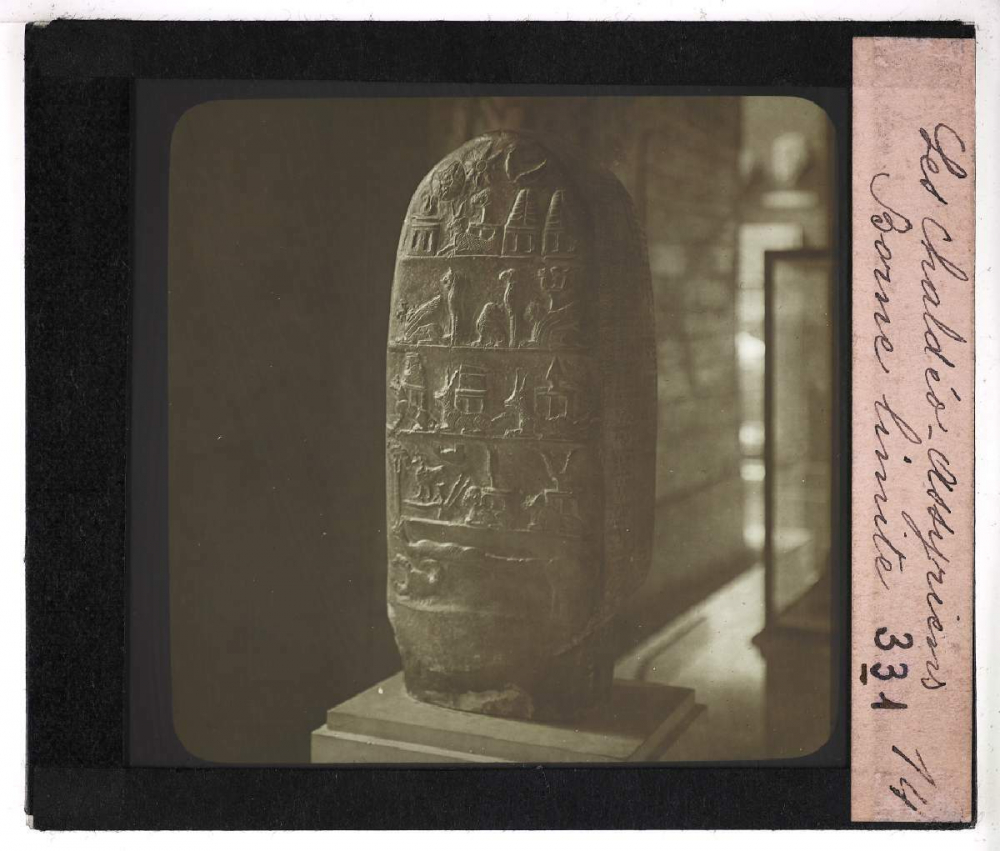 Les Chaldéo-Assyriens 14
Borne limite 331